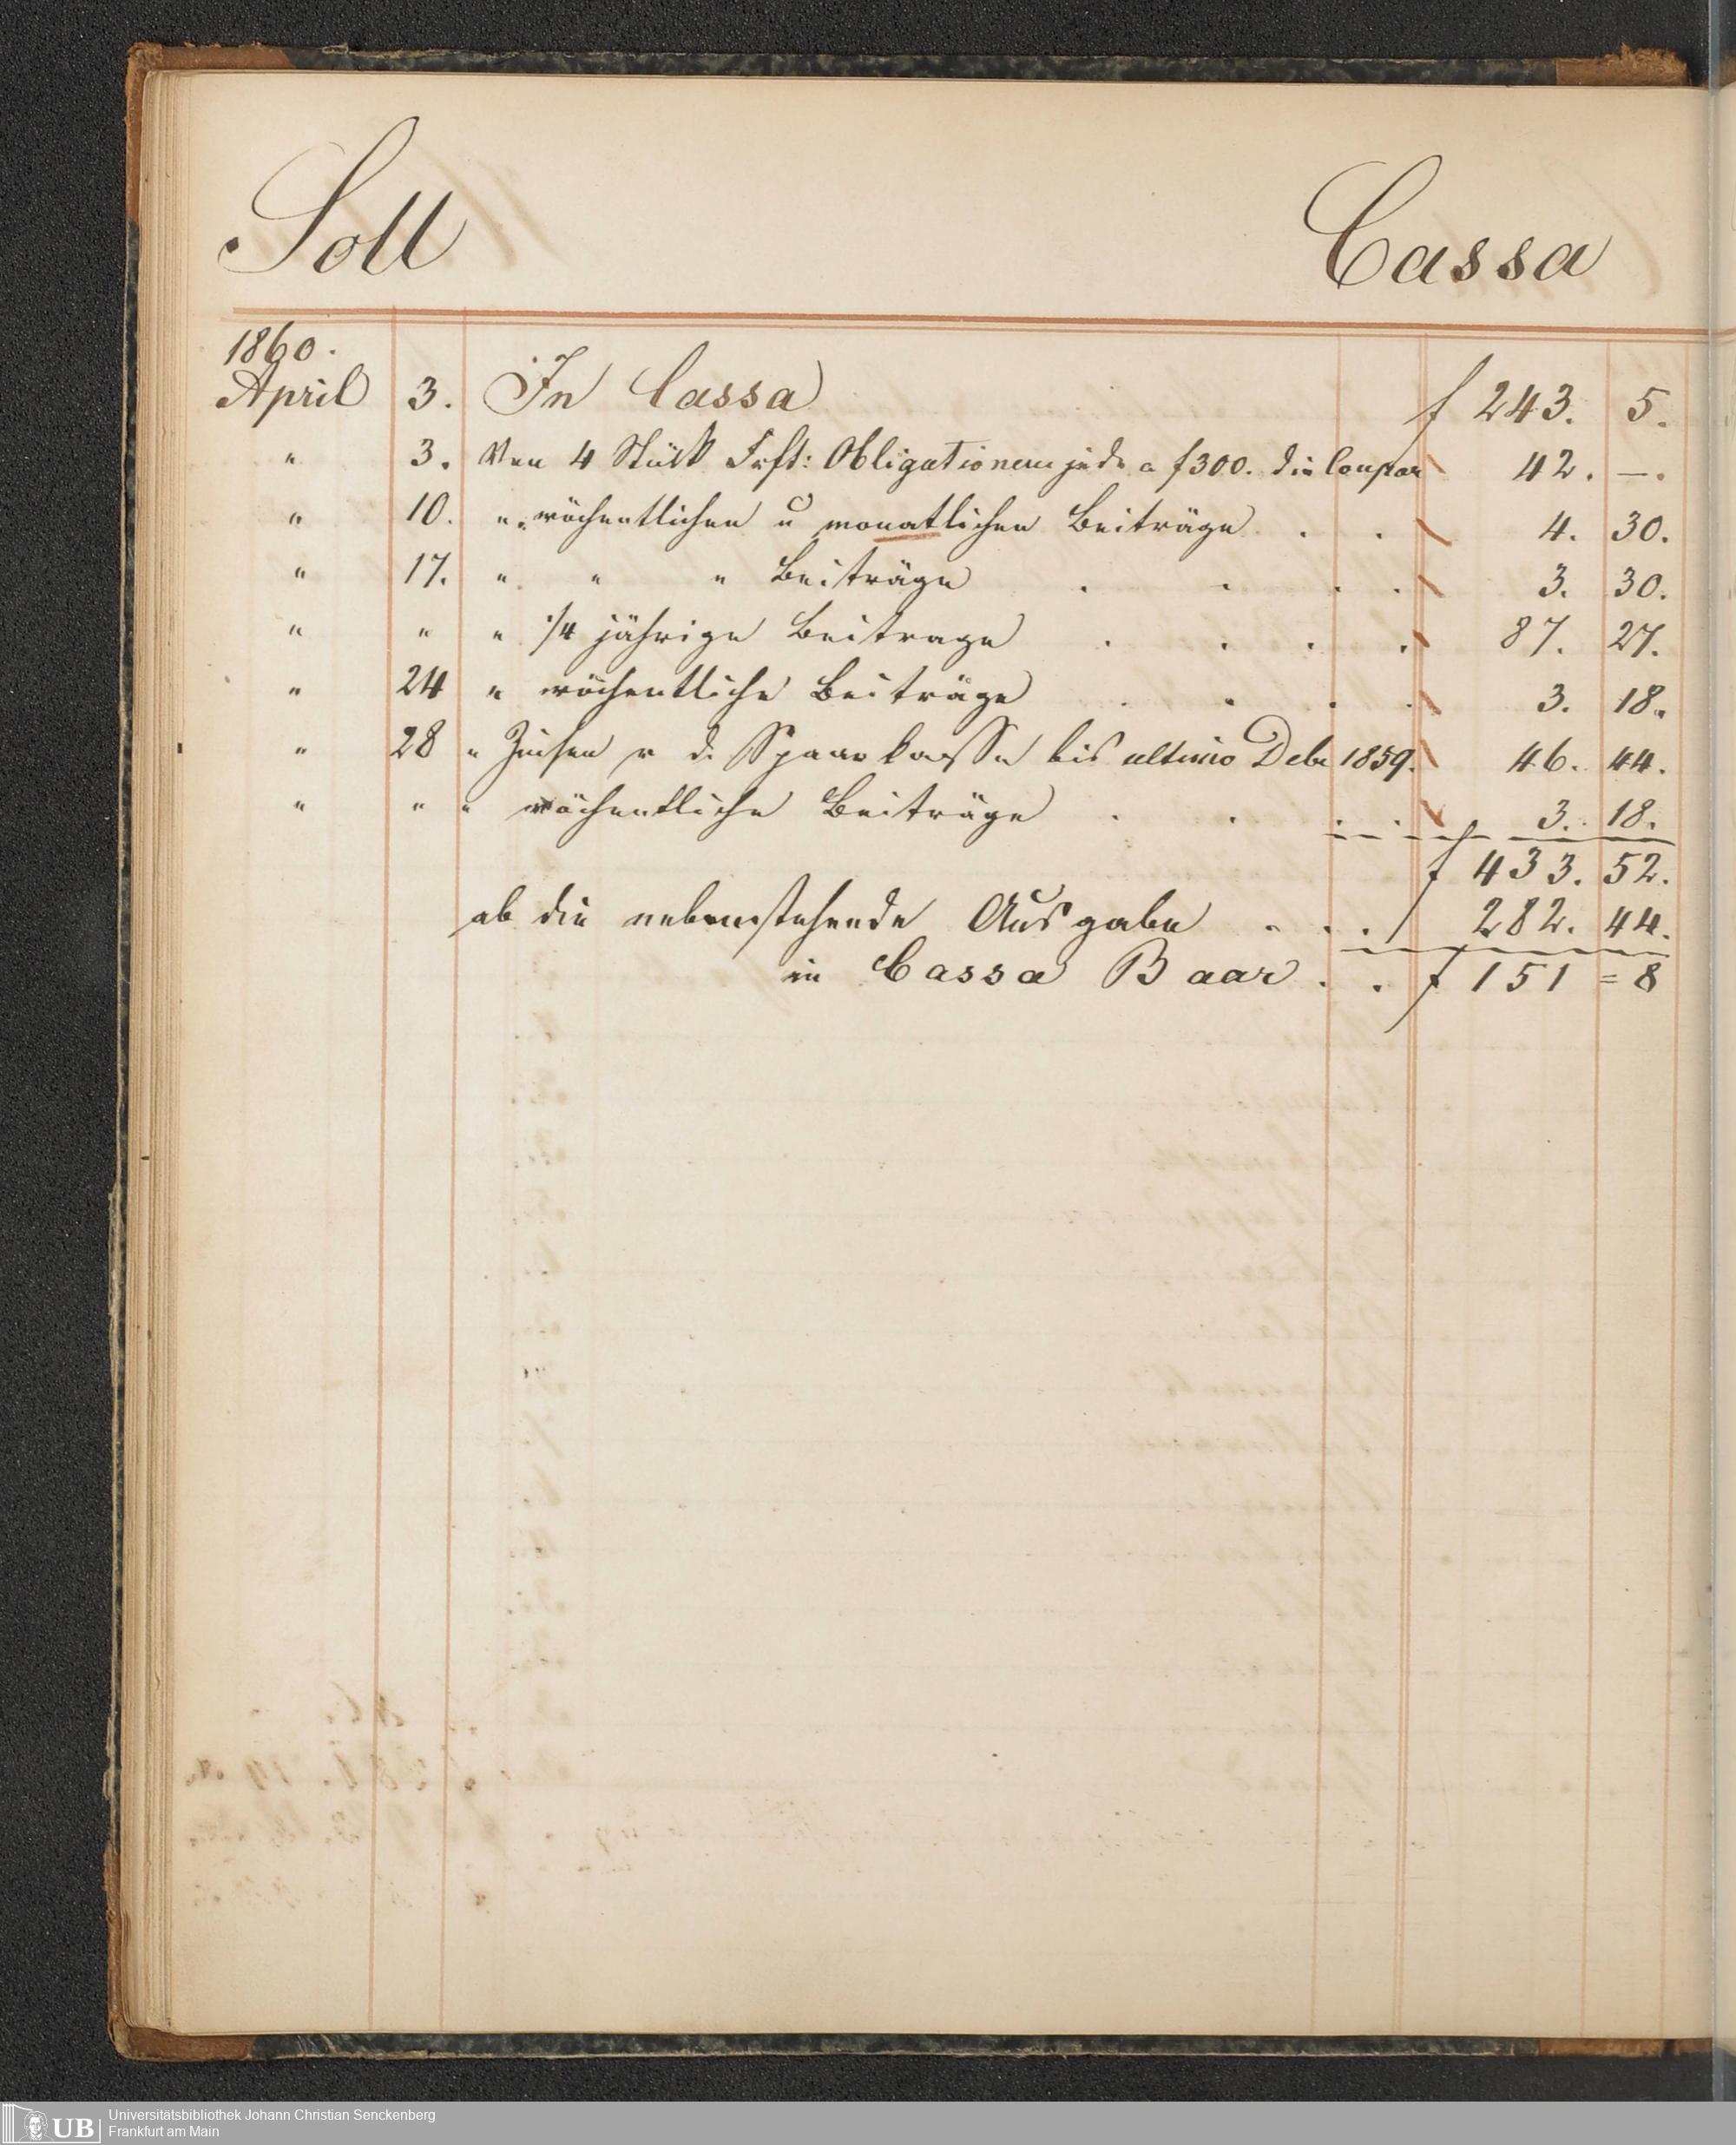 Soll Cassa
1860.
April 3. In Cassa f 243. 5.
" 3. Von 4 Stück Frft: Obligationen jede a f 300. die Coupon 42. —.
" 10. " wöchentlichen u monatlichen Beiträge . . 4. 30.
" 17. " " " Beiträge . . . . 3. 30.
" " " 1/4 jährige Beitrage . . . . 87. 27.
" 24 " wöchentliche Beiträge . . . . 3. 18.
" 28 " Zinsen v d. Spaarkasse bis ultimo Debr 1859. 46. 44.
" " " wöchentliche Beiträge . . . . 3. 18.
f 433. 52.
ab die nebenstehende Ausgabe . . . 282. 44.
in Cassa Baar . . f 151 = 8
UB Universitätsbibliothek Johann Christian Senckenberg
Frankfurt am Main